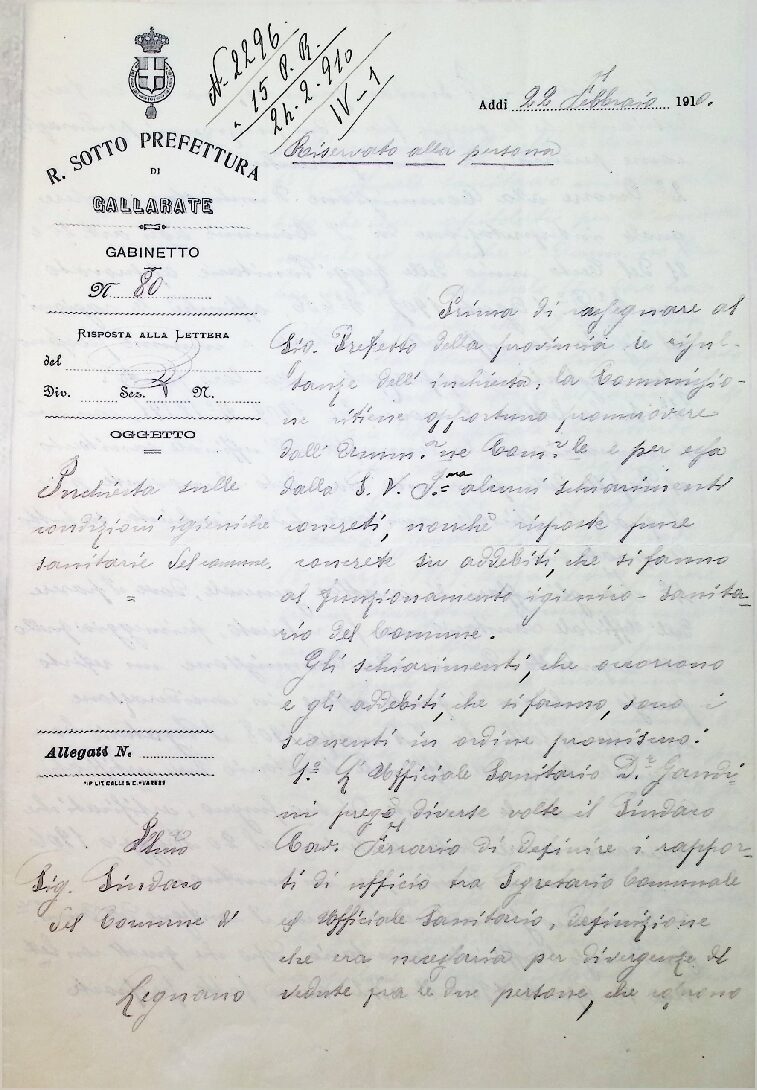 N. 2296
15 P. R.
24-2-910
IV-1
Addì 22 Febbraio 1910.
Riservato alla persona
R. SOTTO PREFETTURA
DI
GALLARATE
GABINETTO
N. 80
RISPOSTA ALLA LETTERA
del
Div. Sez. N.
OGGETTO
Inchiesta sulle
condizioni igieniche
sanitarie del comune.
Prima di rassegnare al
Sig. Prefetto della provincia le risul-
tanze dell'inchiesta, la Commissio-
ne ritiene opportuno promuovere
dall'Amm.ne Com.le e per essa
dalla S. V. I.ma alcuni schiarimenti
concreti, nonchè risposte pure
concrete su addebiti, che si fanno
al funzionamento igienico-sanita-
rio del Comune.
Gli schiarimenti, che occorrono
e gli addebiti, che si fanno, sono i
seguenti in ordine promiscuo:
1.o L'Ufficiale Sanitario D.r Gandi-
ni pregò diverse volte il Sindaco
Cav. Ferrario di definire i rappor-
ti di ufficio tra Segretario Comunale
ed Ufficiale Sanitario, definizione
che era necessaria per divergenze di
vedute fra le due persone, che
Allegati N.
TIP. LIT. GALLI & C. VARESE
Ill.mo
Sig. Sindaco
del Comune di
Legnano